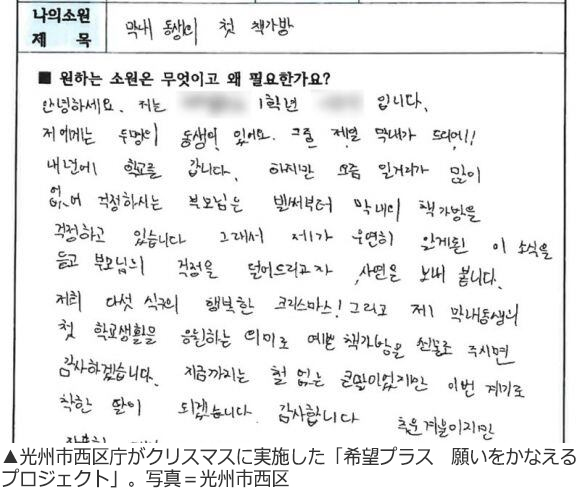 나의소원
제 목
막내 동생의 첫 책가방
■ 원하는 소원은 무엇이고 왜 필요한가요?
안녕하세요. 저는 1학년 입니다.
저에게는 두명의 동생이 있어요. 그중 제일 막내가 드디어!!
내년에 학교를 갑니다. 하지만 요즘 일거리가 많이
없어 걱정하시는 부모님은 벌써부터 막내의 책가방을
걱정하고 있습니다 그래서 제가 우연히 알게된 이 소식을
듣고 부모님의 걱정을 덜어드리고자 사연을 보내 봅니다.
저희 다섯 식구의 행복한 크리스마스! 그리고 제 막내동생의
첫 학교생활을 응원하는 의미로 예쁜 책가방을 선물로 주시면
감사하겠습니다. 지금까지는 철 없는 큰딸이었지만 이번 계기로
착한 딸이 되겠습니다. 감사합니다 추운겨울이지만
▲光州市西区庁がクリスマスに実施した「希望プラス　願いをかなえる
プロジェクト」。写真＝光州市西区